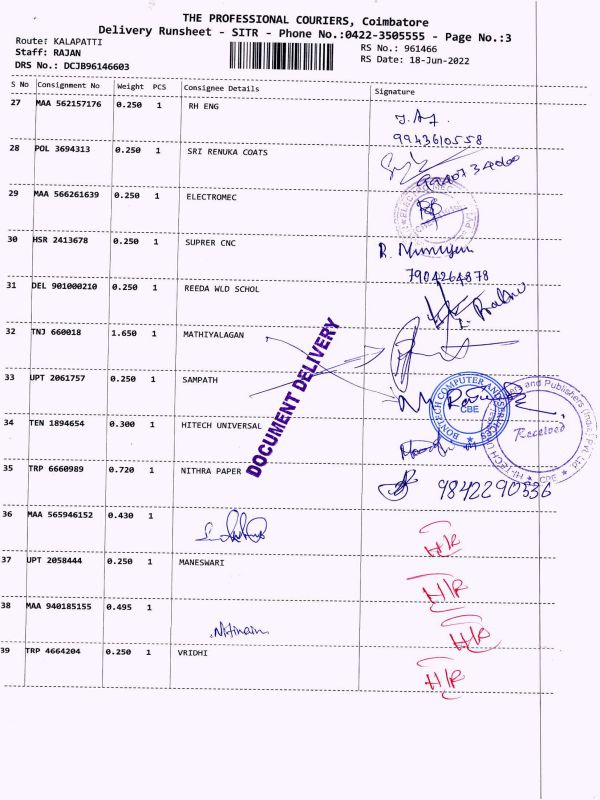 THE PROFESSIONAL COURIERS, Coimbatore
Delivery Runsheet - SITR - Phone No.:0422-3505555 - Page No.:3
Route: KALAPATTI
Staff: RAJAN
DRS No.: DCJB96146603
RS No.: 961466
RS Date: 18-Jun-2022
S No Consignment No Weight PCS Consignee Details Signature
27 MAA 562157176 0.250 1 RH ENG
9943610558
28 POL 3694313 0.250 1 SRI RENUKA COATS
29 MAA 566261639 0.250 1 ELECTROMEC
30 HSR 2413678 0.250 1 SUPRER CNC
7904264878
31 DEL 901000210 0.250 1 REEDA WLD SCHOL
32 TNJ 660018 1.650 1 MATHIYALAGAN
DOCUMENT DELIVERY
33 UPT 2061757 0.250 1 SAMPATH
BONTECH COMPUTER AND SERVICES
CBE
34 TEN 1894654 0.300 1 HITECH UNIVERSAL
Received
35 TRP 6660989 0.720 1 NITHRA PAPER
9842290536
36 MAA 565946152 0.430 1
H/R
37 UPT 2058444 0.250 1 MANESWARI
H/R
38 MAA 940185155 0.495 1
H/R
39 TRP 4664204 0.250 1 VRIDHI
H/R